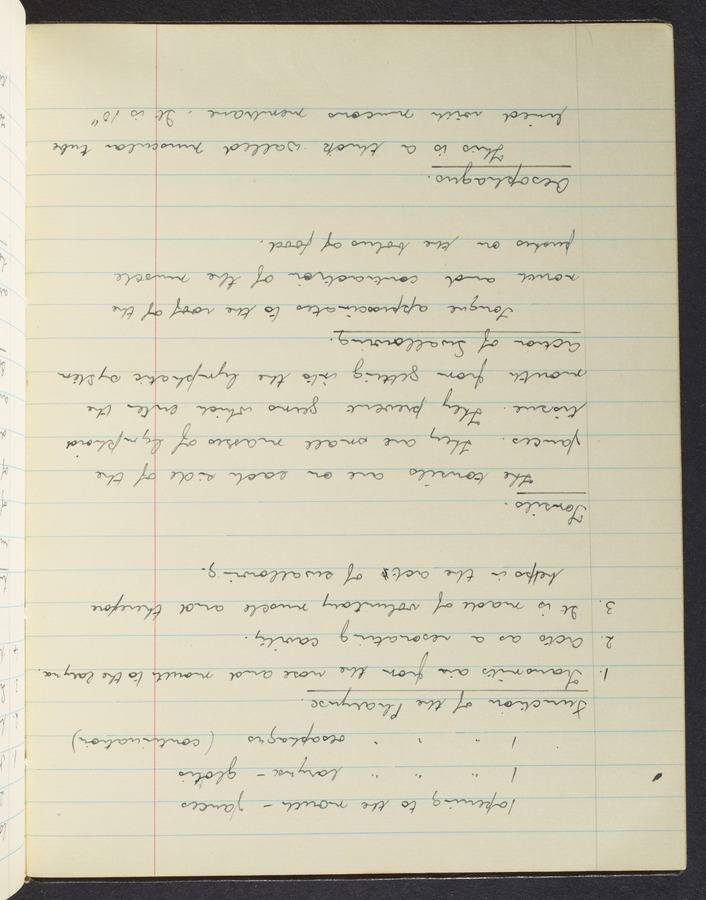 1 opening to the mouth - fauces
1 " " " larynx - glotis
1 " " " oesophagus (continuation)
Function of the Pharynx.
1. Transmits air from the nose and mouth to the larynx.
2. Acts as a resonating cavity.
3. It is made of voluntary muscle and therefore
helps in the act of swallowing.
Tonsils.
The tonsils are on each side of the
fauces. They are small masses of lymphoid
tissue. They prevent germs which enter the
mouth from getting into the lymphatic system
Action of Swallowing.
Tongue approximates to the roof of the
mouth and contraction of the muscle
pushes on the bolus of food.
Oesophagus.
This is a thick walled muscular tube
lined with mucous membrane. It is 10"